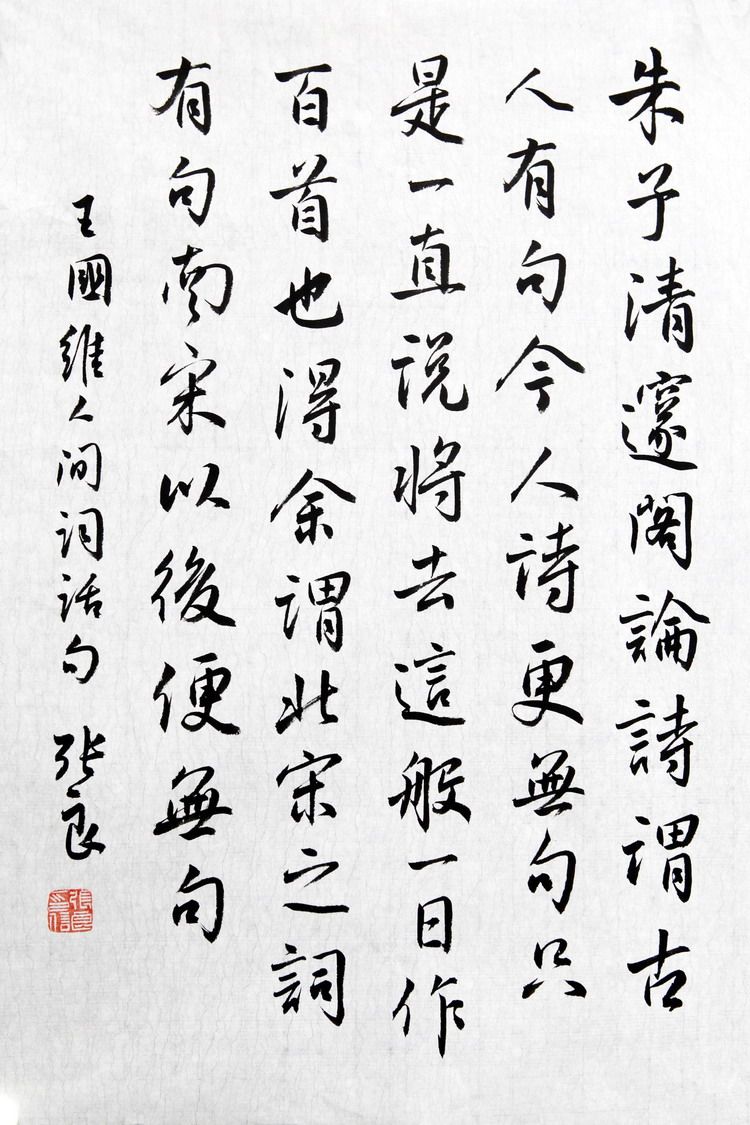 朱子清邃閣論詩謂古
人有句今人詩更無句只
是一直説將去這般一日作
百首也得余謂北宋之詞
有句南宋以後便無句
王國維人间词话句 张良